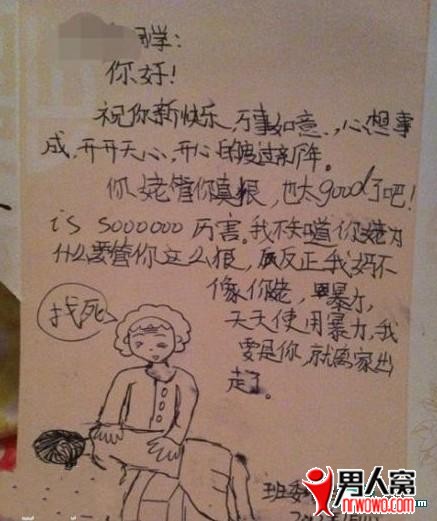 同学：
你好！
祝你新快乐，万事如意，心想事
成，开开天心，开心的度过新年。
你姥管你真狠，也太good了吧！
is sooooooo 厉害。我不知道你姥为
什么要管你这么狠，反正我妈不
像你姥，暴力，
天天使用暴力，我
要是你，就离家出
走了。
找死
班委
男人窝
nrwowo.com